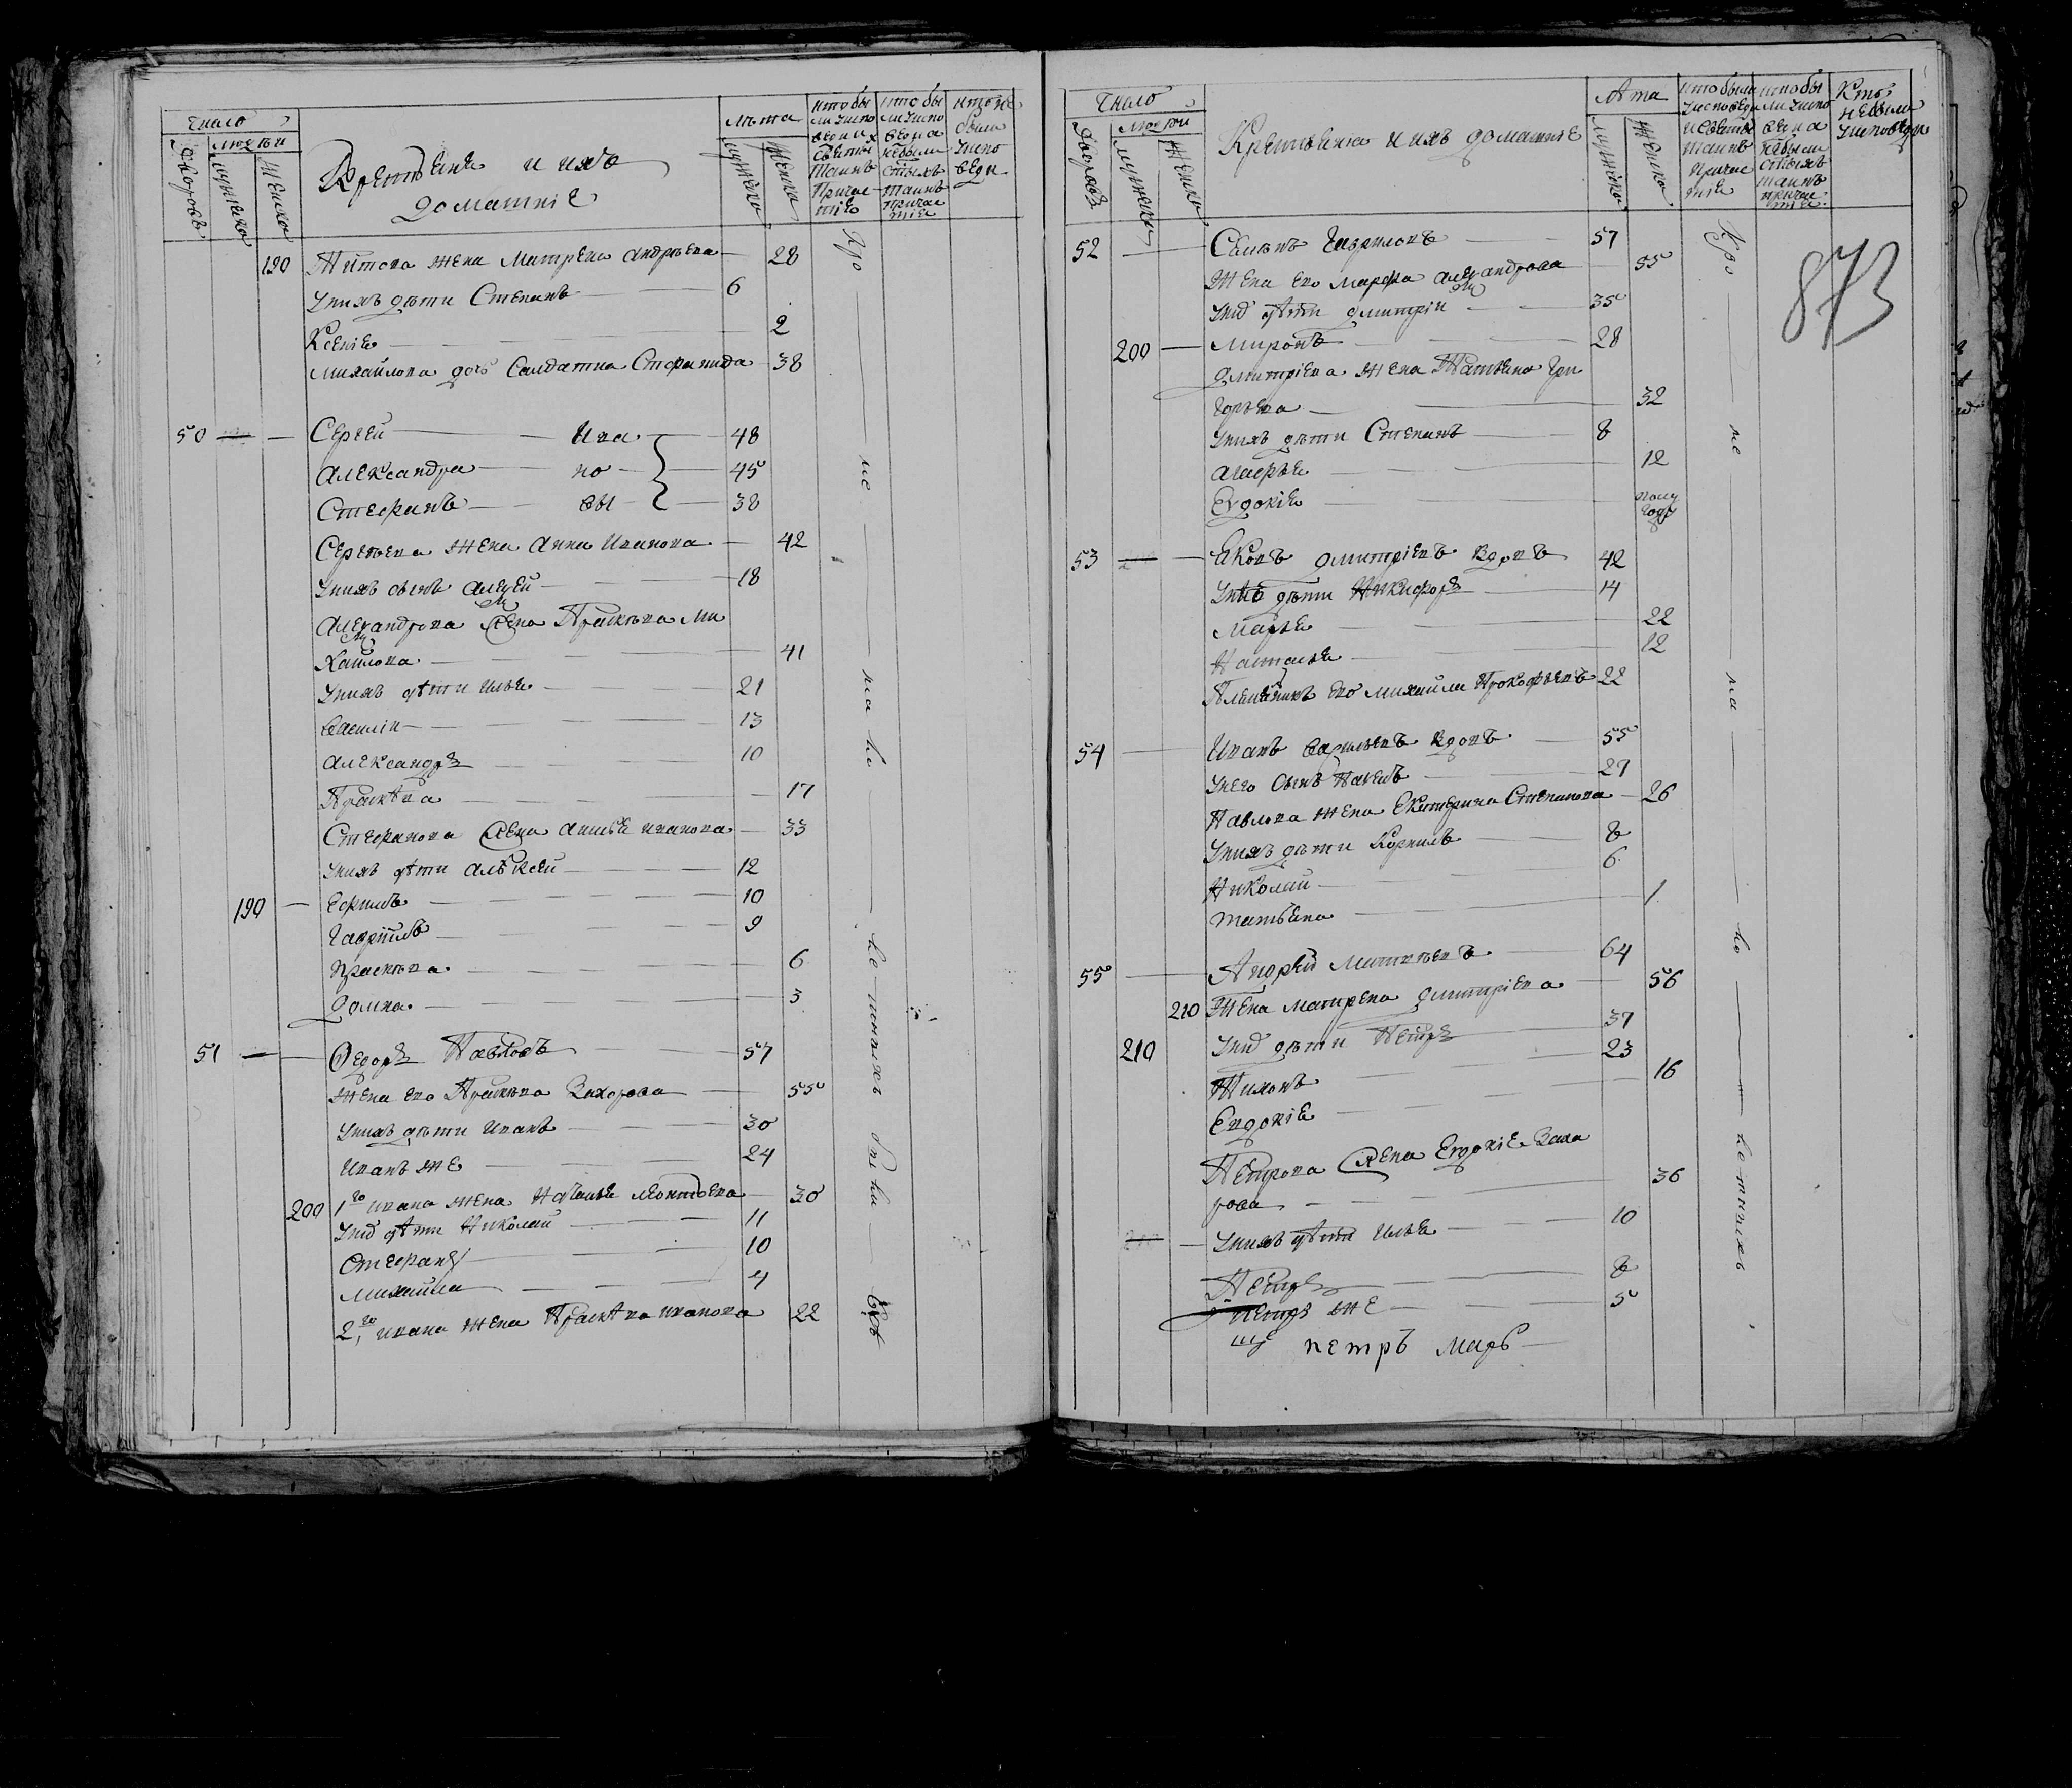 Число
людей
Дворовъ
мужеска
Женска
Крестьяне и ихъ
домашніе
лѣта
мужеска
Женска
кто бы
ли у испо
веди и
святы
Таинъ
Причас
тія
кто бы
ли у испо
веди а
небыли
с:тыхъ
таинъ
причас
тія
кто не
былъ
у испо
веди
190 Титова жена Матрена андрѣева 28
У нихъ дѣти Степанъ 6
Ксенія 2
михайлова дочь Салдатка Стефанида 38
50 Сергей Ива 48
александра но 45
Стефанъ вы 38
Сергѣева жена анна Иванова 42
У нихъ сынъ алексей 18
Александрова жена Прасковья Ми
хайлова 41
У нихъ дѣти илья 21
василіи 13
александръ 10
Прасковья 17
Стефанова жена анисья иванова 33
У нихъ дѣти алѣксей 12
190 Ефимъ 10
Гаврiилъ 9
прасковья 6
домна 3
51 Федоръ Павловъ 57
жена его Прасковья Захарова 55
У нихъ дѣти Иванъ 30
Иванъ же 24
200 1го ивана жена Наталья леонтьева 30
У нихъ дѣти Николай 11
Стефанъ 10
михайла 4
2го ивана жена Прасковья иванова 22
Число
людей
Дворовъ
мужеска
Женска
Крестьяна и ихъ домашніе
лѣта
мужеска
Женска
кто были
у исповеди
и святы
таинъ
причас
тія
кто бы
ли у испо
веди а
небыли
с:тыхъ
таинъ
причас
тія
Кто
небыли
у исповеди
873
52 Семенъ Гавриловъ 57
жена его марфа александрова 55
У нихъ дѣти дмитріи 35
200 миронъ 28
дмитріева жена Татьяна Гри
горьева 32
У нихъ дѣти Степанъ 8
агафья 12
Евдокія полу
года
53 Яковъ дмитріевъ вдовъ 42
У него дѣти Никифоръ 14
марья 22
Наталья 12
Племяникъ его михайла Прокофьевъ 22
54 Иванъ васильевъ вдовъ 55
У него сынъ Павелъ 27
Павлова жена Екатерина Степанова 26
У нихъ дѣти Корнилъ 8
Николай 6
татьяна 1
55 Андрей матвѣевъ 64
210 жена матрена дмитріева 56
210 У нихъ дѣти Петръ 37
Тихонъ 23
Евдокія 16
Петрова жена Евдокія Заха
рова 36
У нихъ дѣти илья 10
Петръ 8
петръ же 5
петръ марѳ